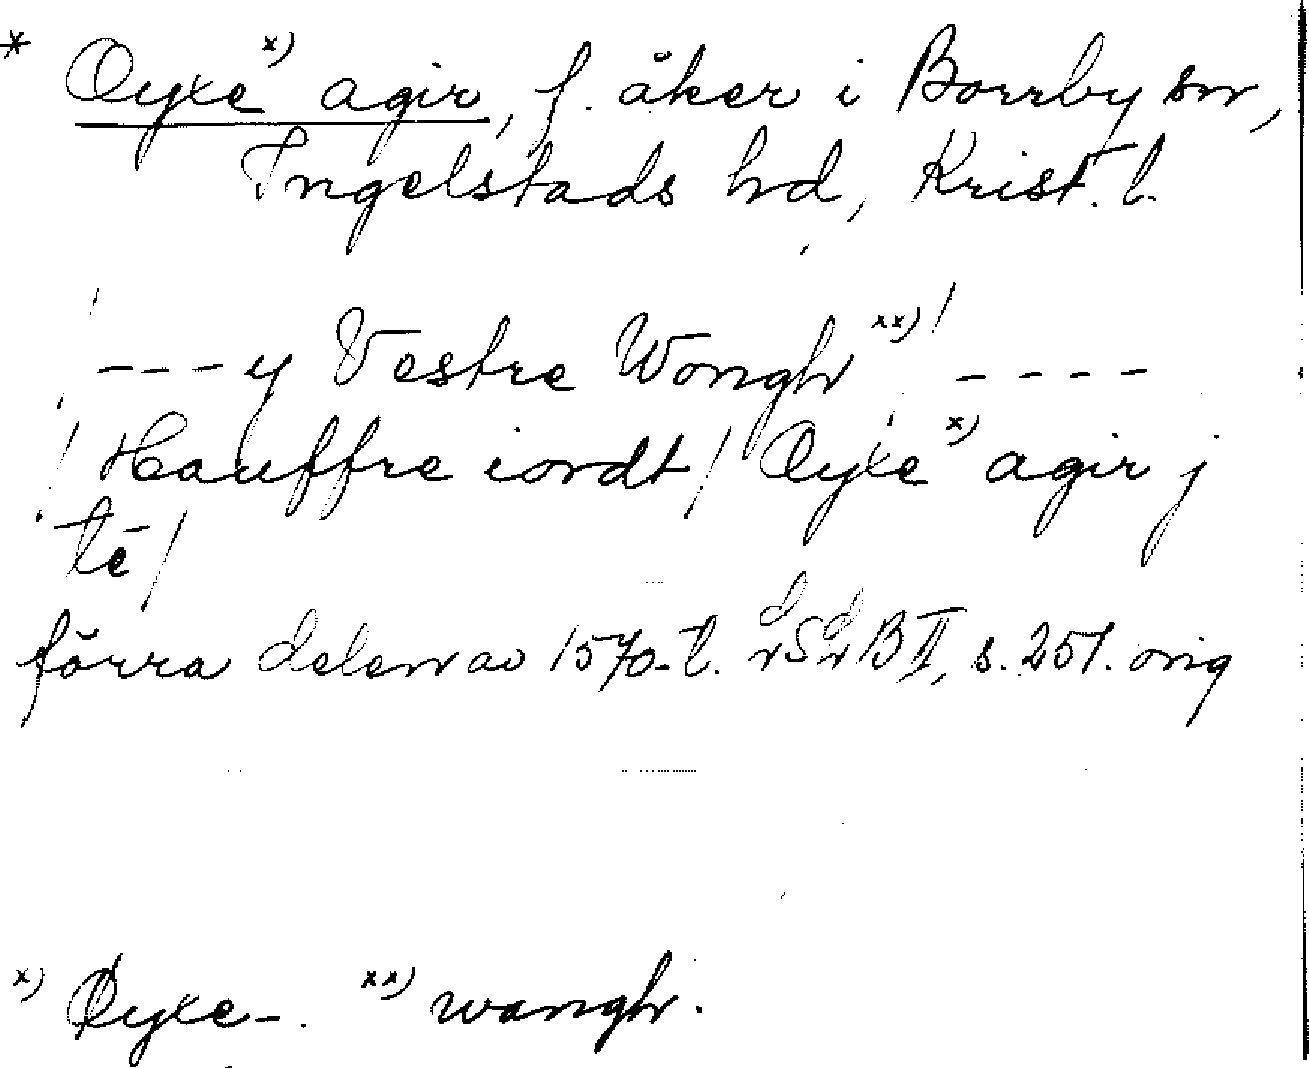 * Oyxe x) agir, f. åker i Borrby sn,
Ingelstads hd, Krist. l.
/ - - - y Vestre Wongh xx) / - - - -
/ Hauffre iordt / Oyxe x) agir j
tē /
förra delen av 1570-t. B II, s. 251. orig
x) Øyxe-. xx) wangh.